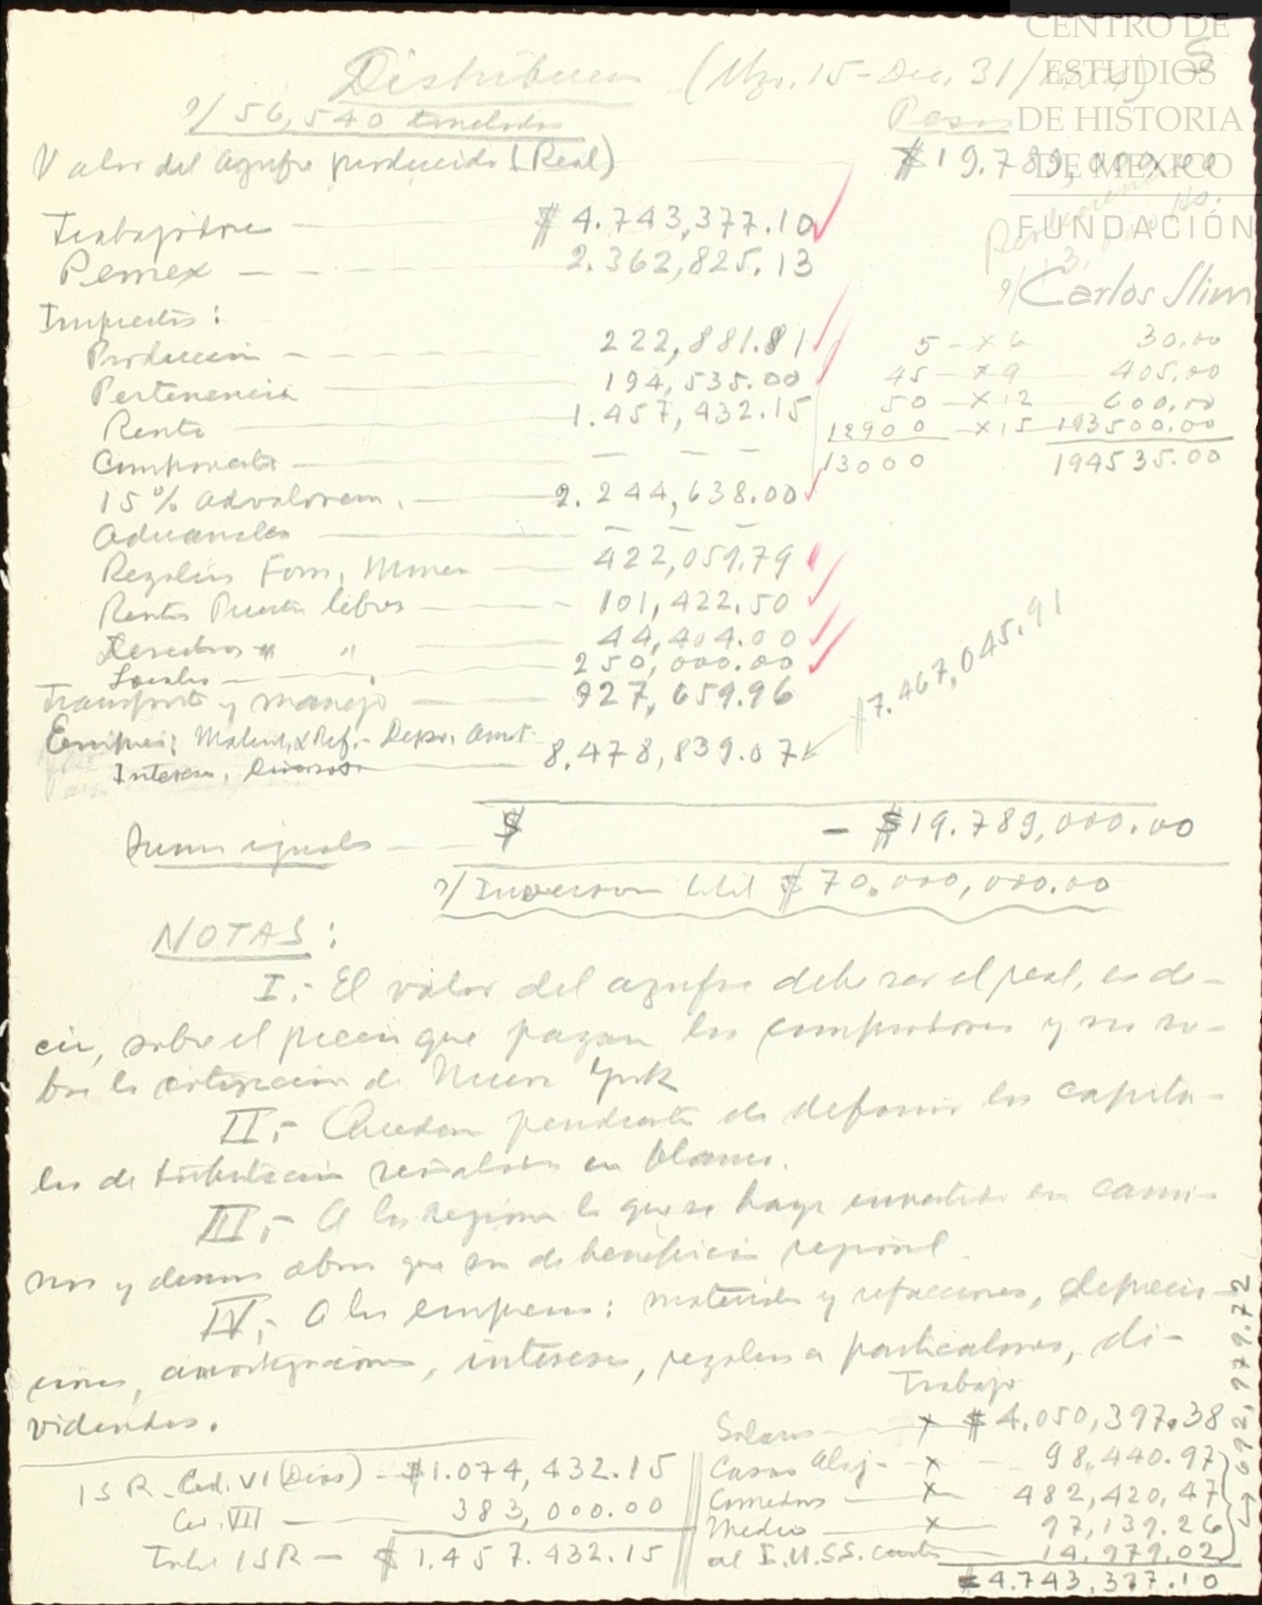 CENTRO DE
ESTUDIOS
DE HISTORIA
DE MÉXICO
FUNDACIÓN
Carlos Slim
5
Distribucion (Mzo. 15 - Dic. 31/
s/ 56,540 toneladas
Pesos
Valor del azufre producido (Real) $19.789,000.00
Trabajadores $4.743,377.10
Pemex 2.362,825.13
Impuestos:
Produccion 222,881.81
Pertenencia 194,535.00
Renta 1.457,432.15
s/
5 - x 6 30.00
45 - x 9 405.00
50 - x 12 600.00
12900 - x 15 193500.00
13000 194535.00
Comporcata — — —
15% advalorem. 2.244,638.00
Aduanales — — —
Regalias Fom. Minero 422,059.79
Rentas Puertos libres 101,422.50
Derechos " " 44,404.00
Locales 250,000.00
Transporte y manejo 927,659.96
$7.467,045.91
Empresa: Material, y Ref. - Depr. Amt.
Intereses, Diversos 8.478,839.07
Sumas iguales $ - $19.789,000.00
s/ Inversion total $70.000,000.00
NOTAS:
I.- El valor del azufre debe ser el real, es de-
cir, sobre el precio que pagan los compradores y no so-
bre la cotizacion de Nueva York
II.- Quedan pendientes de definir los capitu-
los de tributacion señalados en blanco.
III.- A la region lo que se haya invertido en cami-
nos y demas obras que son de beneficio regional.
IV.- A las empresas: materiales y refacciones, deprecia-
ciones, amortizaciones, intereses, regalias a particulares, di-
videndos.
I S R - Ced. VI (Divs) - $1.074,432.15
Ced. VII 383,000.00
Total ISR - $1.457.432.15
Trabajo
Salarios x $4.050,397.38
Casas Aloj- x 98,440.97
Comedores x 482,420.47
Medico x 97,139.26
al I.M.S.S. cuota 14,979.02
$4.743,377.10
692,979.72